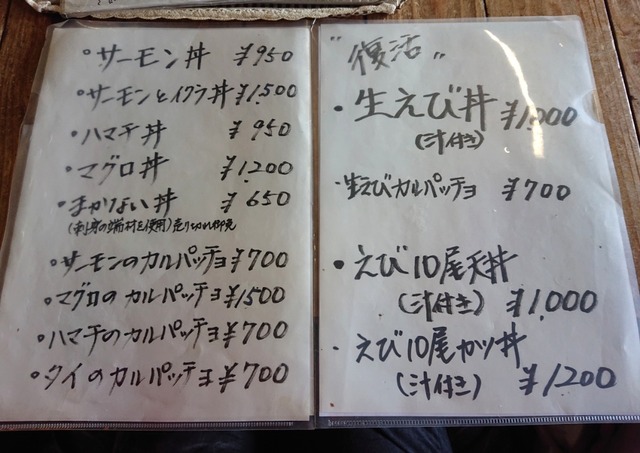 ・サーモン丼 ¥950
・サーモンとイクラ丼 ¥1,500
・ハマチ丼 ¥950
・マグロ丼 ¥1,200
・まかない丼 ¥650
(刺身の端材を使用)売り切れ御免
・サーモンのカルパッチョ ¥700
・マグロのカルパッチョ ¥1,500
・ハマチのカルパッチョ ¥700
・タイのカルパッチョ ¥700
"復活"
・生えび丼 ¥1,000
(汁付き)
・生えびカルパッチョ ¥700
・えび10尾天丼
(汁付き) ¥1,000
・えび10尾カツ丼
(汁付き) ¥1200